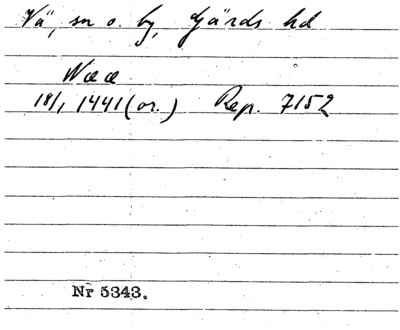 Vä, sn o. by, Gärds hd
Wææ
18/1 1441 (or.) Rep. 7152
Nr 5343.